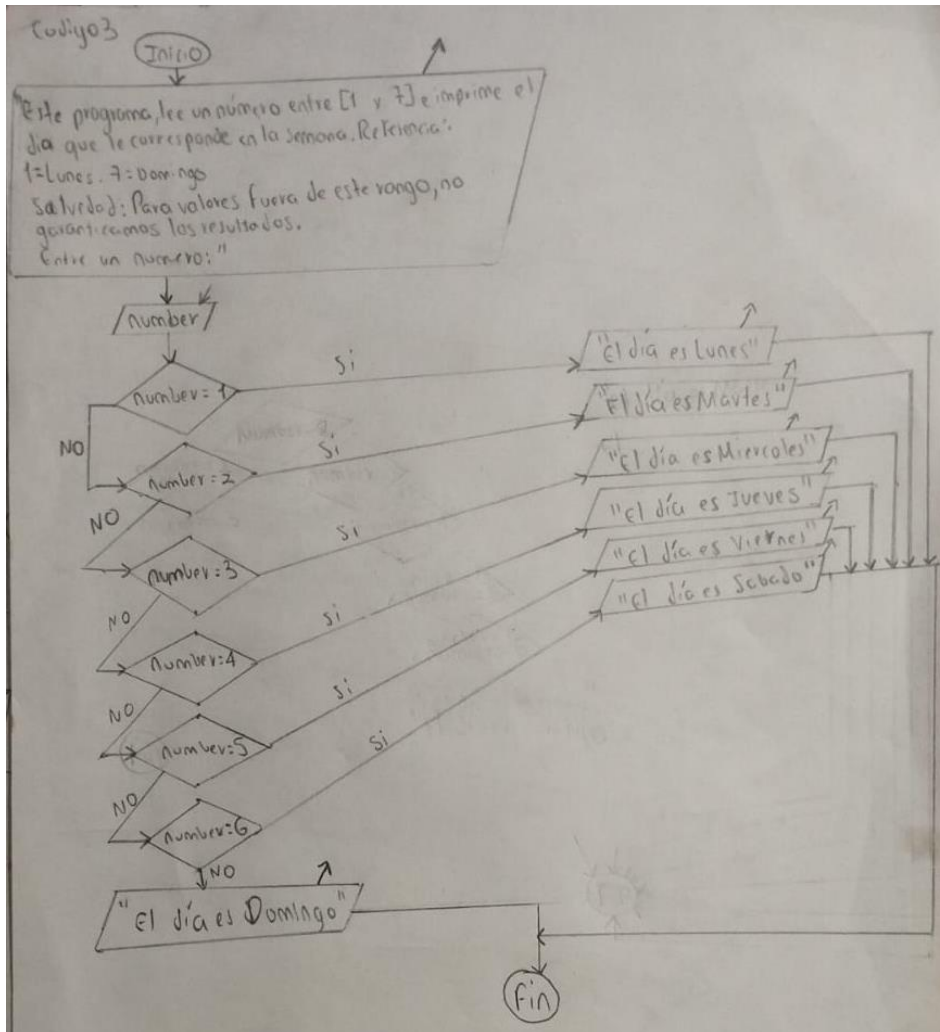 Codigo3
Inicio
"Este programa, lee un número entre [1 y 7] e imprime el
día que le corresponde en la semana. Referencia:
1=Lunes. 7=Domingo
Salvedad: Para valores fuera de este rango, no
garanticamos los resultados.
Entre un numero:"
number
number=1
Si
"El día es Lunes"
NO
number=2
Si
"El día es Martes"
NO
number=3
Si
"El día es Miercoles"
NO
number=4
Si
"El día es Jueves"
NO
number=5
Si
"El día es Viernes"
NO
number=6
Si
"El día es Sabado"
NO
"El día es Domingo"
Fin